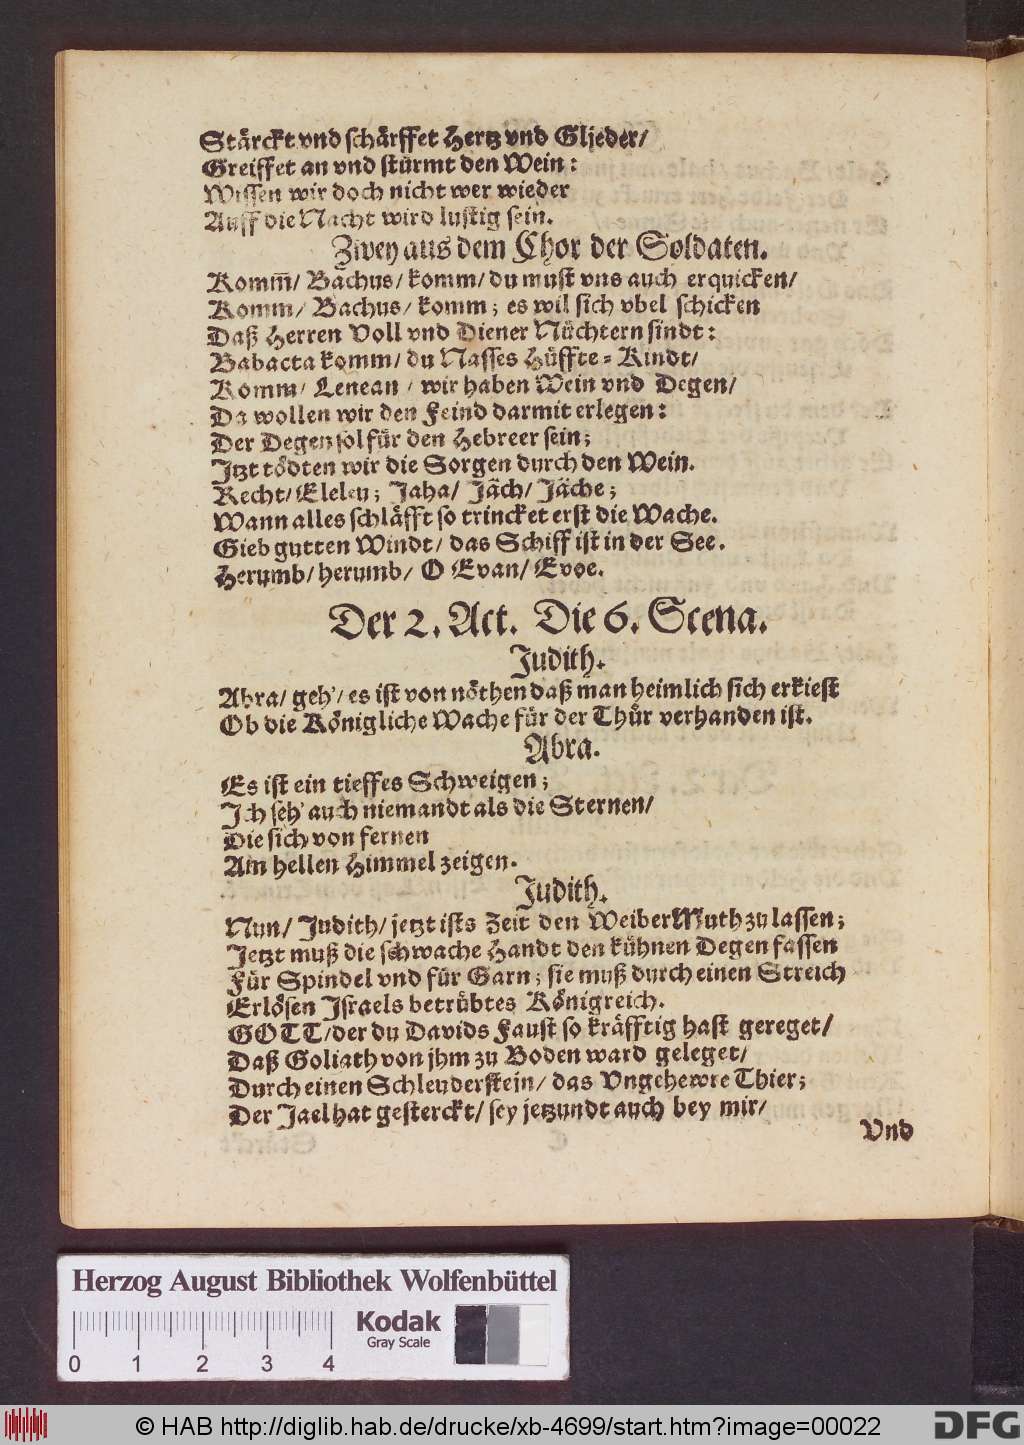 Stärckt vnd schärffet Hertz vnd Glieder/
Greiffet an vnd stürmt den Wein:
Wissen wir doch nicht wer wieder
Auff die Nacht wird lustig sein.
Zwey aus dem Chor der Soldaten.
Kom̃/ Bachus/ komm/ du must vns auch erquicken/
Komm/ Bachus/ komm; es wil sich vbel schicken
Daß Herren Voll vnd Diener Nüchtern sindt:
Babacta komm/ du Nasses Hüffte-Kindt/
Komm/ Lenean/ wir haben Wein vnd Degen/
Da wollen wir den Feind darmit erlegen:
Der Degen sol für den Hebreer sein;
Jtzt tödten wir die Sorgen durch den Wein.
Recht/ Eleleu; Jaha/ Jäch/ Jäche;
Wann alles schläfft so trincket erst die Wache.
Gieb gutten Windt/ das Schiff ist in der See.
Herumb/ herumb/ O Evan/ Evoe.
Der 2. Act. Die 6. Scena.
Judith.
Abra/ geh'/ es ist von nöthen daß man heimlich sich erkiest
Ob die Königliche Wache für der Thür verhanden ist.
Abra.
Es ist ein tieffes Schweigen;
Jch seh' auch niemandt als die Sternen/
Die sich von fernen
Am hellen Himmel zeigen.
Judith.
Nun/ Judith/ jetzt ists Zeit den Weiber Muth zu lassen;
Jetzt muß die schwache Handt den kühnen Degen fassen
Für Spindel vnd für Garn; sie muß durch einen Streich
Erlösen Jsraels betrübtes Königreich.
GOTT/ der du Davids Faust so kräfftig hast gereget/
Daß Goliath von jhm zu Boden ward geleget/
Durch einen Schleuderstein/ das Vngehewre Thier;
Der Jael hat gesterckt/ sey jetzundt auch bey mir/
Vnd
Herzog August Bibliothek Wolfenbüttel
Kodak
Gray Scale
0 1 2 3 4
© HAB http://diglib.hab.de/drucke/xb-4699/start.htm?image=00022
DFG